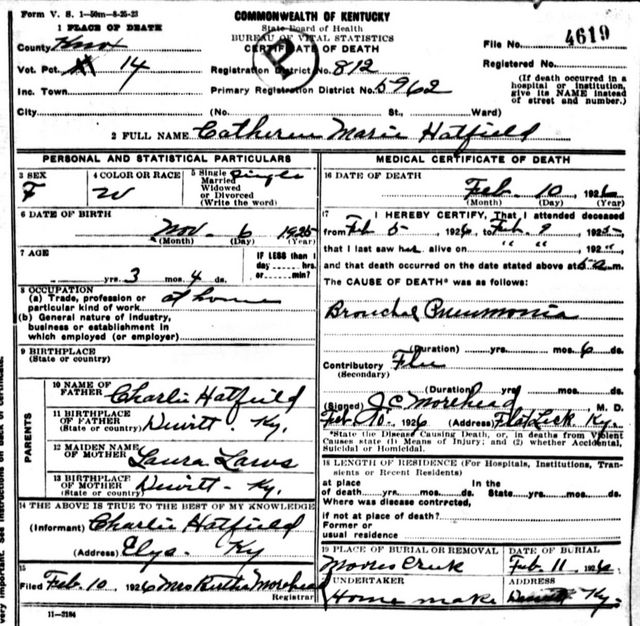 Form V. S. 1-50m-8-26-23
COMMONWEALTH OF KENTUCKY
State Board of Health
BUREAU OF VITAL STATISTICS
CERTIFICATE OF DEATH
1 PLACE OF DEATH
County Knox
Vot. Pct. # 14
Inc. Town
City
(No. St., Ward)
Registration District No. 812
Primary Registration District No. 5962
P
File No. 4619
Registered No.
(If death occurred in a
hospital or institution,
give its NAME instead
of street and number.)
2 FULL NAME Catherine Marie Hatfield
PERSONAL AND STATISTICAL PARTICULARS
3 SEX
F
4 COLOR OR RACE
W
5 Single Single
Married
Widowed
or Divorced
(Write the word)
6 DATE OF BIRTH
Nov. 6 1925
(Month) (Day) (Year)
7 AGE
yrs. 3 mos. 4 ds.
IF LESS than 1
day hrs.
or min?
8 OCCUPATION
(a) Trade, profession or
particular kind of work at home
(b) General nature of industry,
business or establishment in
which employed (or employer)
9 BIRTHPLACE
(State or country)
PARENTS
10 NAME OF
FATHER Charlie Hatfield
11 BIRTHPLACE
OF FATHER
(State or country) Dewitt - Ky.
12 MAIDEN NAME
OF MOTHER Laura Laws
13 BIRTHPLACE
OF MOTHER
(State or country) Dewitt - Ky.
14 THE ABOVE IS TRUE TO THE BEST OF MY KNOWLEDGE
(Informant) Charlie Hatfield
(Address) Elys. Ky
15
Filed Feb. 10 1926 Mrs Bertha Morehead
Registrar
11-3184
MEDICAL CERTIFICATE OF DEATH
16 DATE OF DEATH
Feb. 10 1926
(Month) (Day) (Year)
17 I HEREBY CERTIFY, That I attended deceased
from Feb 5 1926, to Feb. 9 1925
that I last saw her alive on " " " 192"
and that death occurred on the date stated above at 5 a.m.
The CAUSE OF DEATH* was as follows:
Bronchal Pneumonia
(Duration) yrs. mos. 6 ds.
Contributory Flu
(Secondary)
(Duration) yrs. mos. ds.
(Signed) J C Morehead M. D.
Feb. 10. 1926 (Address) Flat Lick Ky.
*State the Disease Causing Death, or, in deaths from Violent
Causes state (1) Means of Injury; and (2) whether Accidental,
Suicidal or Homicidal.
18 LENGTH OF RESIDENCE (For Hospitals, Institutions, Tran-
sients or Recent Residents)
at place In the
of death yrs. mos. ds. State yrs. mos. ds.
Where was disease contrected,
if not at place of death?
Former or
usual residence
19 PLACE OF BURIAL OR REMOVAL
Moores Creek
DATE OF BURIAL
Feb. 11 1926
UNDERTAKER
Home make
ADDRESS
Dewitt Ky.
very important. See instructions on back of certificate.